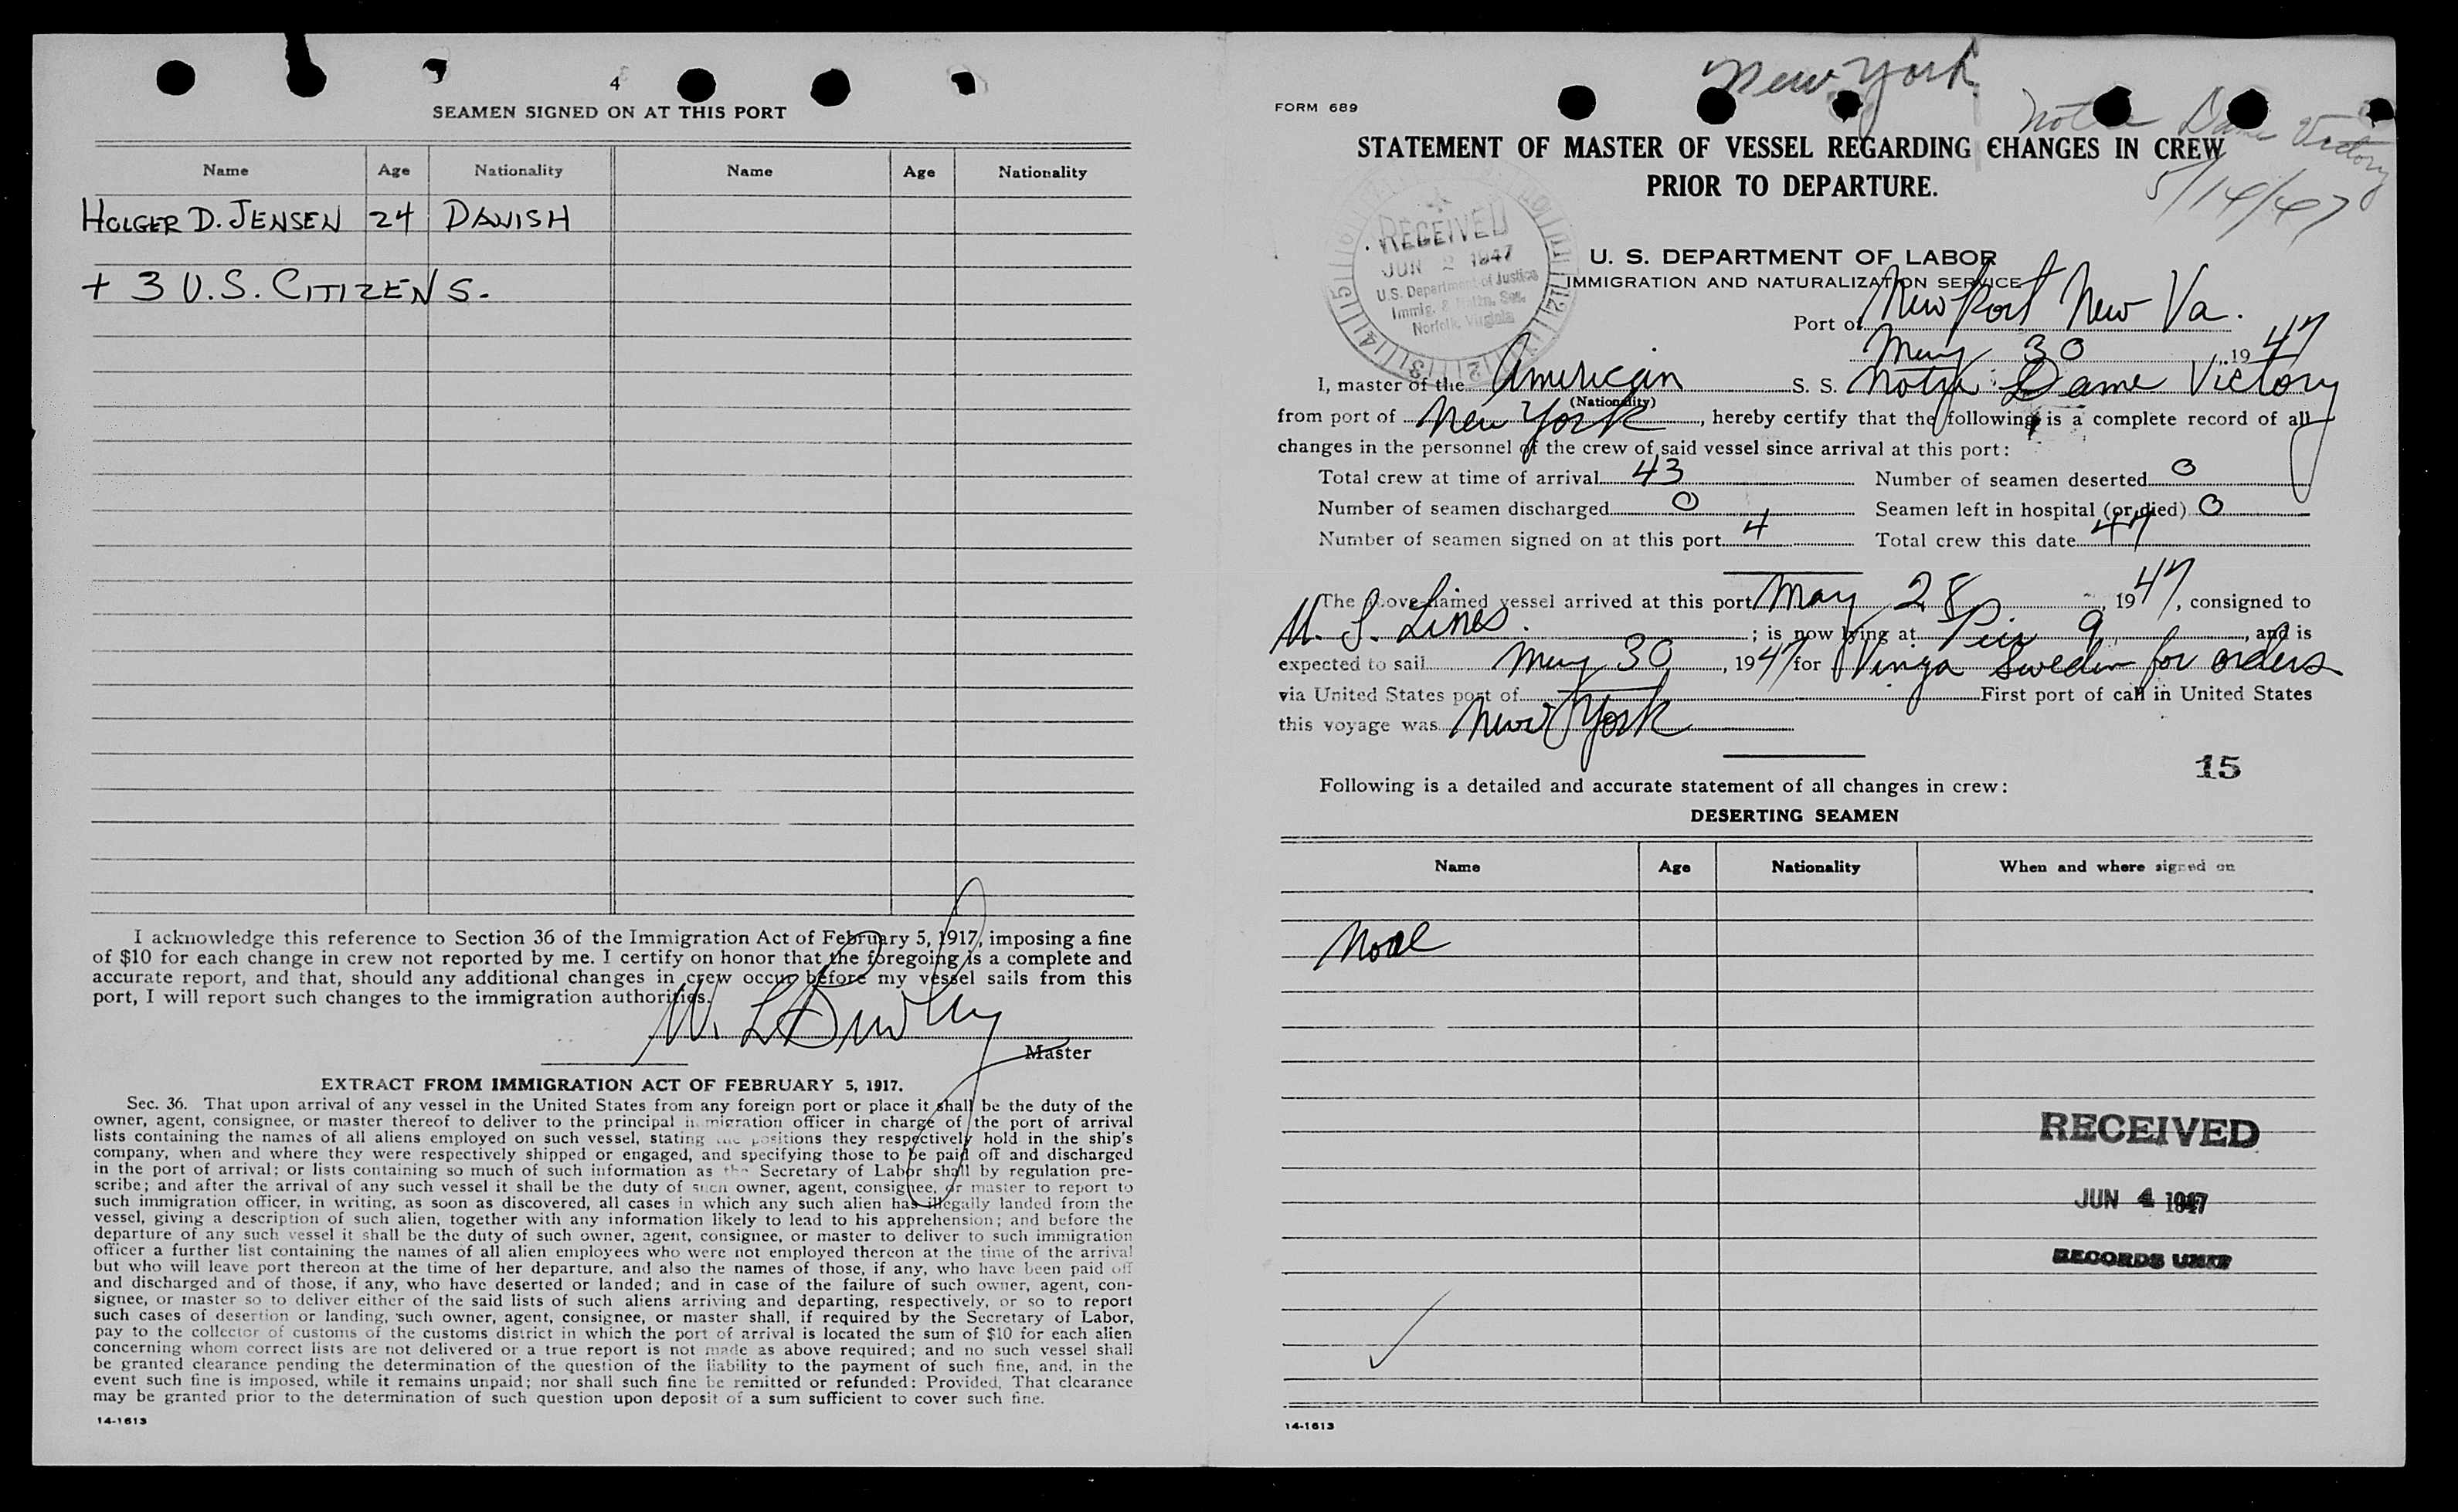 4
SEAMEN SIGNED ON AT THIS PORT
Name Age Nationality Name Age Nationality
HOLGER D. JENSEN 24 DANISH
+ 3 U.S. CITIZENS.
I acknowledge this reference to Section 36 of the Immigration Act of February 5, 1917, imposing a fine
of $10 for each change in crew not reported by me. I certify on honor that the foregoing is a complete and
accurate report, and that, should any additional changes in crew occur before my vessel sails from this
port, I will report such changes to the immigration authorities.
W. L.
Master
EXTRACT FROM IMMIGRATION ACT OF FEBRUARY 5, 1917.
Sec. 36. That upon arrival of any vessel in the United States from any foreign port or place it shall be the duty of the
owner, agent, consignee, or master thereof to deliver to the principal immigration officer in charge of the port of arrival
lists containing the names of all aliens employed on such vessel, stating the positions they respectively hold in the ship's
company, when and where they were respectively shipped or engaged, and specifying those to be paid off and discharged
in the port of arrival; or lists containing so much of such information as the Secretary of Labor shall by regulation pre-
scribe; and after the arrival of any such vessel it shall be the duty of such owner, agent, consignee, or master to report to
such immigration officer, in writing, as soon as discovered, all cases in which any such alien has illegally landed from the
vessel, giving a description of such alien, together with any information likely to lead to his apprehension; and before the
departure of any such vessel it shall be the duty of such owner, agent, consignee, or master to deliver to such immigration
officer a further list containing the names of all alien employees who were not employed thereon at the time of the arrival
but who will leave port thereon at the time of her departure, and also the names of those, if any, who have been paid off
and discharged and of those, if any, who have deserted or landed; and in case of the failure of such owner, agent, con-
signee, or master so to deliver either of the said lists of such aliens arriving and departing, respectively, or so to report
such cases of desertion or landing, such owner, agent, consignee, or master shall, if required by the Secretary of Labor,
pay to the collector of customs of the customs district in which the port of arrival is located the sum of $10 for each alien
concerning whom correct lists are not delivered or a true report is not made as above required; and no such vessel shall
be granted clearance pending the determination of the question of the liability to the payment of such fine, and, in the
event such fine is imposed, while it remains unpaid; nor shall such fine be remitted or refunded: Provided, That clearance
may be granted prior to the determination of such question upon deposit of a sum sufficient to cover such fine.
14-1613
New York
FORM 689
Notre Dame Victory
5/14/47
STATEMENT OF MASTER OF VESSEL REGARDING CHANGES IN CREW
PRIOR TO DEPARTURE.
RECEIVED
JUN 2 1947
U.S. Department of Justice
Immig. & Natzn. Ser.
Norfolk, Virginia
U. S. DEPARTMENT OF LABOR
IMMIGRATION AND NATURALIZATION SERVICE
Port of New Port New Va.
May 30 1947
I, master of the American S. S. Notre Dame Victory
(Nationality)
from port of New York, hereby certify that the following is a complete record of all
changes in the personnel of the crew of said vessel since arrival at this port:
Total crew at time of arrival 43 Number of seamen deserted 0
Number of seamen discharged 0 Seamen left in hospital (or died) 0
Number of seamen signed on at this port 4 Total crew this date 47
The above-named vessel arrived at this port May 28, 1947, consigned to
U. S. Lines.; is now lying at Peir 9, and is
expected to sail May 30, 1947 for Vinga Sweden for orders
via United States port of First port of call in United States
this voyage was New York
15
Following is a detailed and accurate statement of all changes in crew:
DESERTING SEAMEN
Name Age Nationality When and where signed on
None
RECEIVED
JUN 4 1947
RECORDS UNIT
14-1613